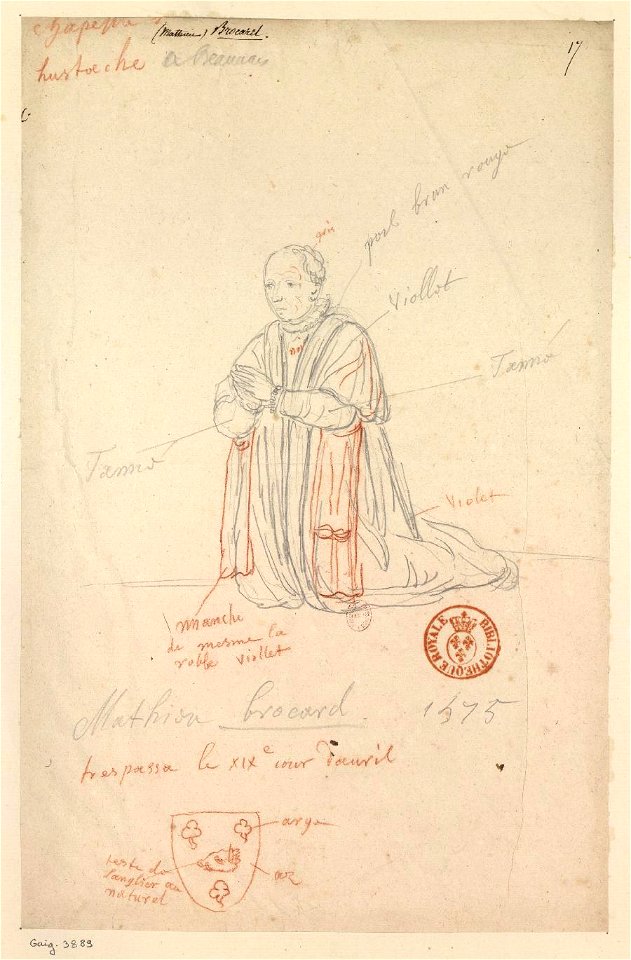 (Mathieu) Brocard.
chapelle
hustache a Beauvais
17
gris
poil brun rouge
viollet
Tanné
Tanné
violet
manche
de mesme la
robbe viollet
BIBLIOTHEQUE ROYALE
Mathieu brocard 1575
trespassa le XIXe iour dauril
arge
teste de
sanglier au
naturel
az
Gaig. 3889